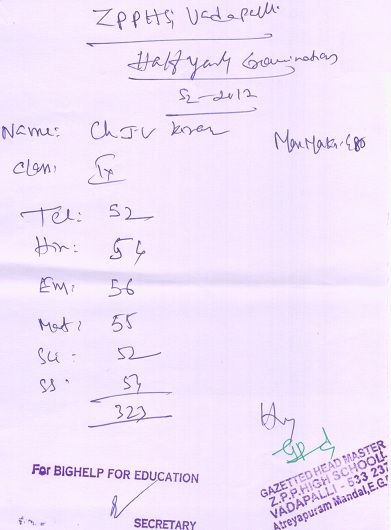 ZPPHS, Vadapalli
Half yearly Examinations
S2-2012
Name: Ch J V Kiran
Max Marks: 480
Class: IX
Tel: 52
Hin: 54
Em: 56
Mat: 55
Sci: 52
SS: 54
323
For BIGHELP FOR EDUCATION
SECRETARY
GAZETTED HEAD MASTER
Z.P.P. HIGH SCHOOL
VADAPALLI - 533 237
Atreyapuram Mandal, E.G.